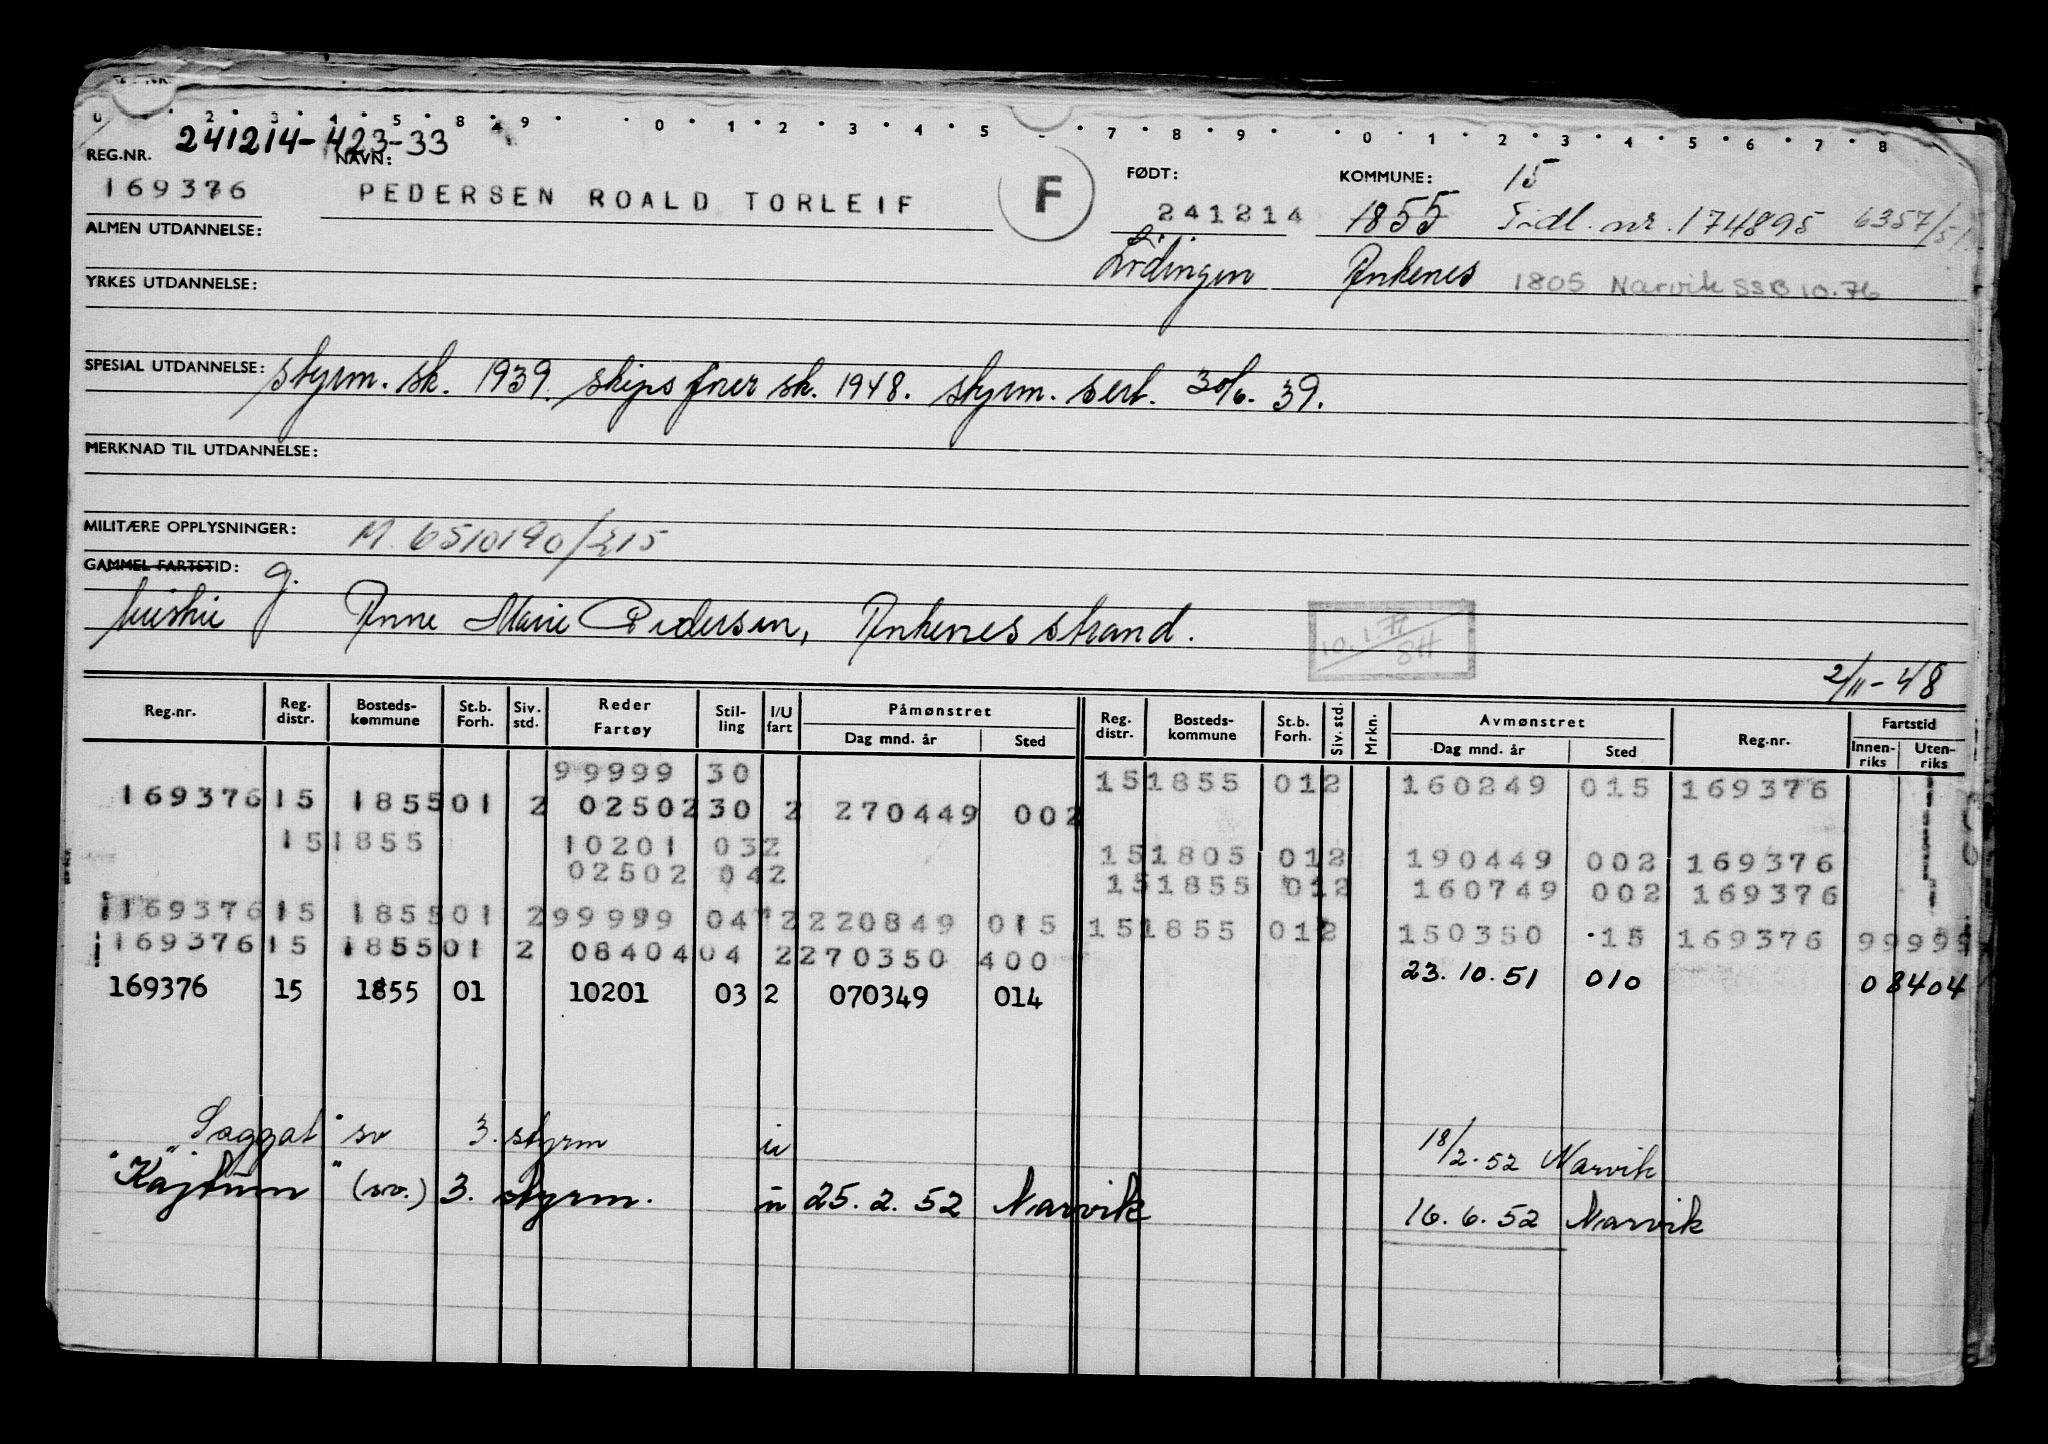 0 2 3 4 5 8 9 0 1 2 3 4 5 7 8 9 0 1 2 3 4 5 6 7 8
241214-423-33
REG.NR. NAVN: FØDT: KOMMUNE: 15
169376 PEDERSEN ROALD TORLEIF F 241214 1855 Tidl. nr. 174895 6357/51
ALMEN UTDANNELSE: Lødingen Ankenes 1805 Narvik SSB 10.76
YRKES UTDANNELSE:
SPESIAL UTDANNELSE: styrm. sk. 1939. skipsfører sk. 1948. styrm. sert. 30/6. 39.
MERKNAD TIL UTDANNELSE:
MILITÆRE OPPLYSNINGER: M. 6510190/215
GAMMEL FARTSTID: g.
hustru Anne Marie Pedersen, Ankenesstrand.
10.1.71
2/11-48
Reg.nr. Reg. distr. Bosteds-kommune St.b. Forh. Siv. std. Reder Fartøy Stil-ling I/U fart Påmønstret Dag mnd. år Sted Reg. distr. Bosteds-kommune St.b. Forh. Siv. std. Mrkn. Avmønstret Dag mnd. år Sted Reg.nr. Fartstid Innen-riks Uten-riks
99999 30 15 1855 01 2 160249 015 169376
169376 15 1855 01 2 02502 30 2 270449 002
15 1855 10201 03 2 15 1805 01 2 190449 002 169376
02502 04 2 15 1855 01 2 160749 002 169376
169376 15 1855 01 2 99999 04 2 220849 015 15 1855 01 2 150350 15 169376 99999
169376 15 1855 01 2 08404 04 2 270350 400 23.10.51 010 08404
169376 15 1855 01 10201 03 2 070349 014
"Saggat" sv 3. styrm u 18/2.52 Narvik
"Kajtum" (sv.) 3. styrm. u 25.2.52 Narvik 16.6.52 Narvik